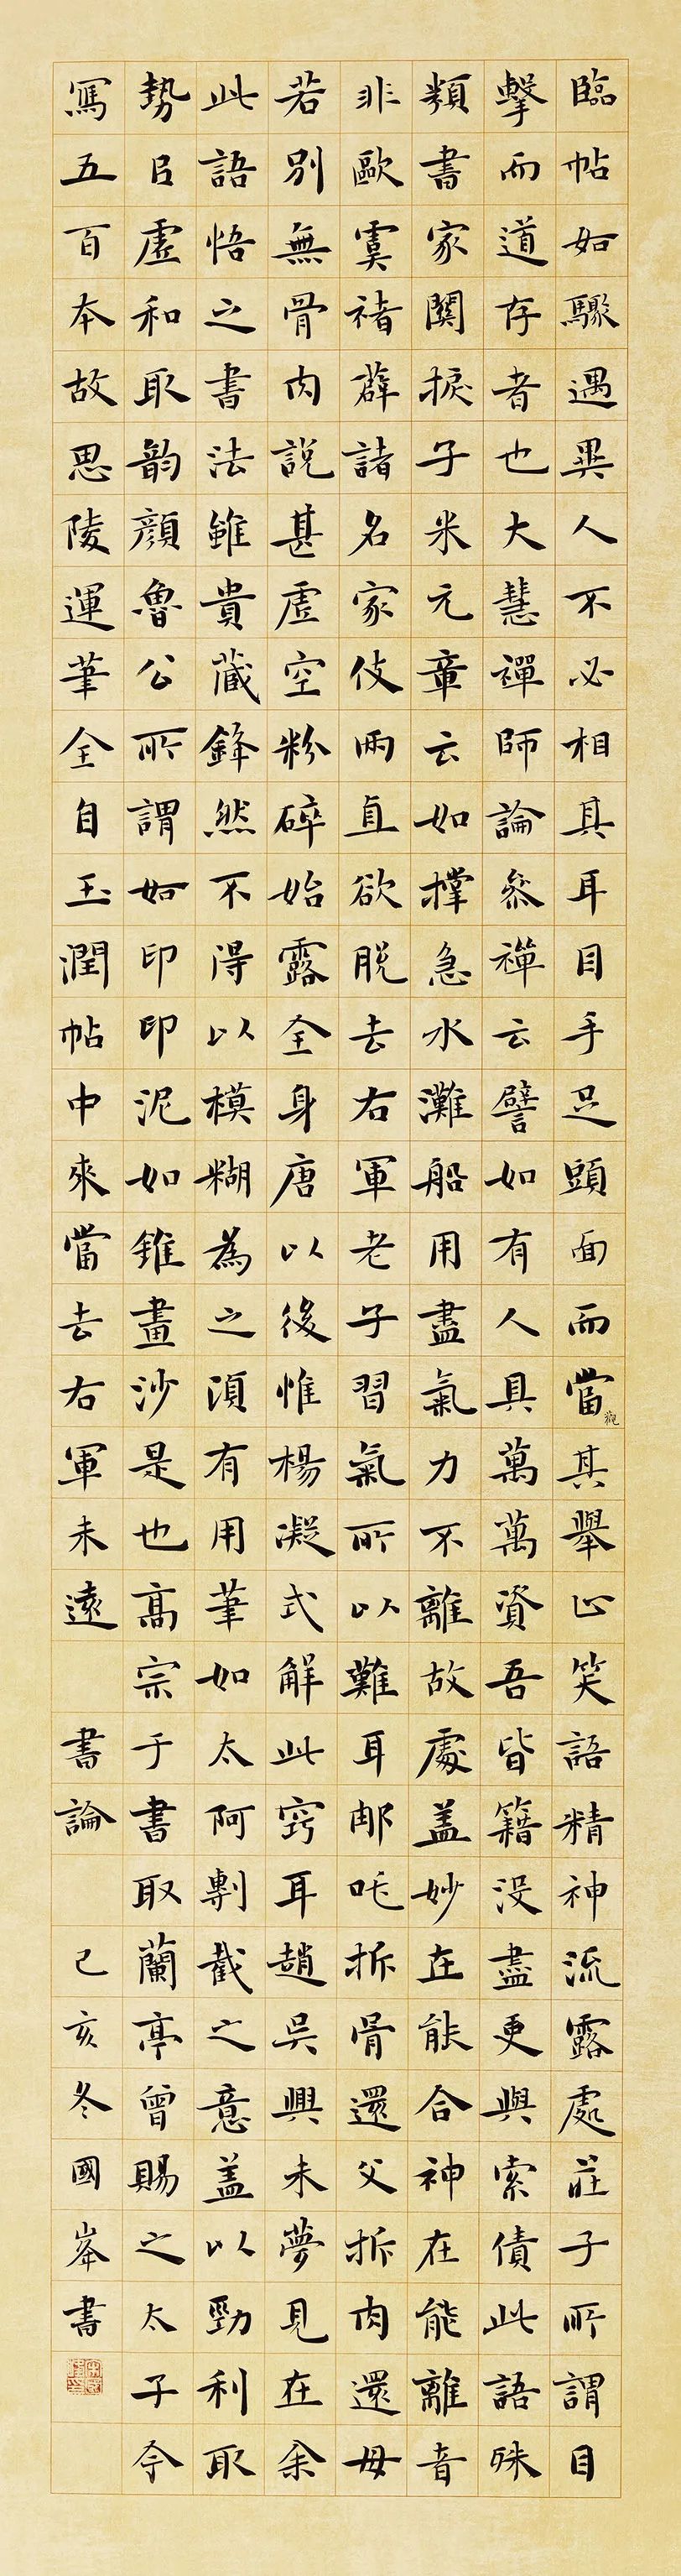 臨帖如驟遇異人不必相其耳目手足頭面而當觀其舉止笑語精神流露處莊子所謂目
擊而道存者也大慧禪師論參禪云譬如有人具萬萬資吾皆籍没盡更與索債此語殊
類書家關捩子米元章云如撑急水灘船用盡氣力不離故處盖妙在能合神在能離音
非歐虞褚薛諸名家伎兩直欲脱去右軍老子習氣所以難耳那吒拆骨還父拆肉還母
若別無骨肉說甚虛空粉碎始露全身唐以後惟楊凝式解此竅耳趙吳興未夢見在余
此語悟之書法雖貴藏鋒然不得以模糊為之須有用筆如太阿剸截之意盖以勁利取
勢㠯虛和取韵顏魯公所謂如印印泥如錐畫沙是也高宗于書取蘭亭曾賜之太子令
寫五百本故思陵運筆全自玉潤帖中來當去右軍未遠 書論 己亥冬國峯書